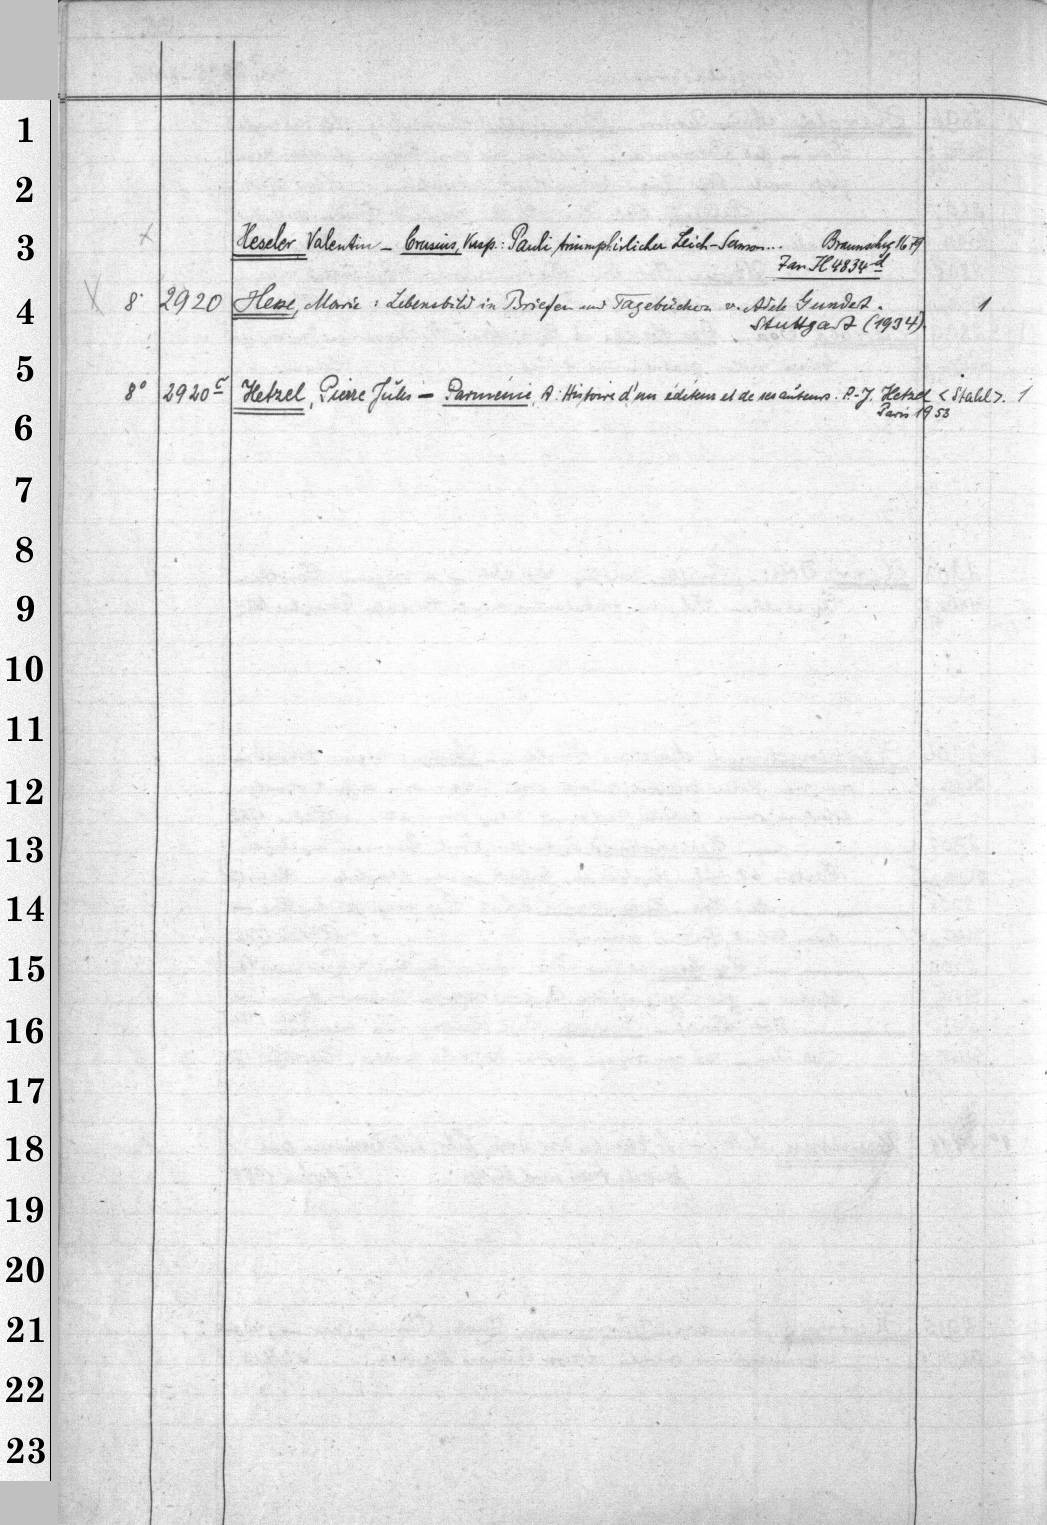 1
2
3 × Heseler, Valentin – Crusius, Kasp.: Pauli triumphirlicher Leich-Sermon... Braunschwg 1679
7 an H 4834d
4 X 8° 2920 Hesse, Marie : Lebensbild in Briefen und Tagebüchern v. Adele Gundert.
Stuttgart (1934). 1
5
8° 2920c Hetzel, Pierre Jules – Parménie, A: Histoire d'un éditeur et de ses auteurs. P.-J. Hetzel <Stahl>. 1
Paris 1953
6
7
8
9
10
11
12
13
14
15
16
17
18
19
20
21
22
23